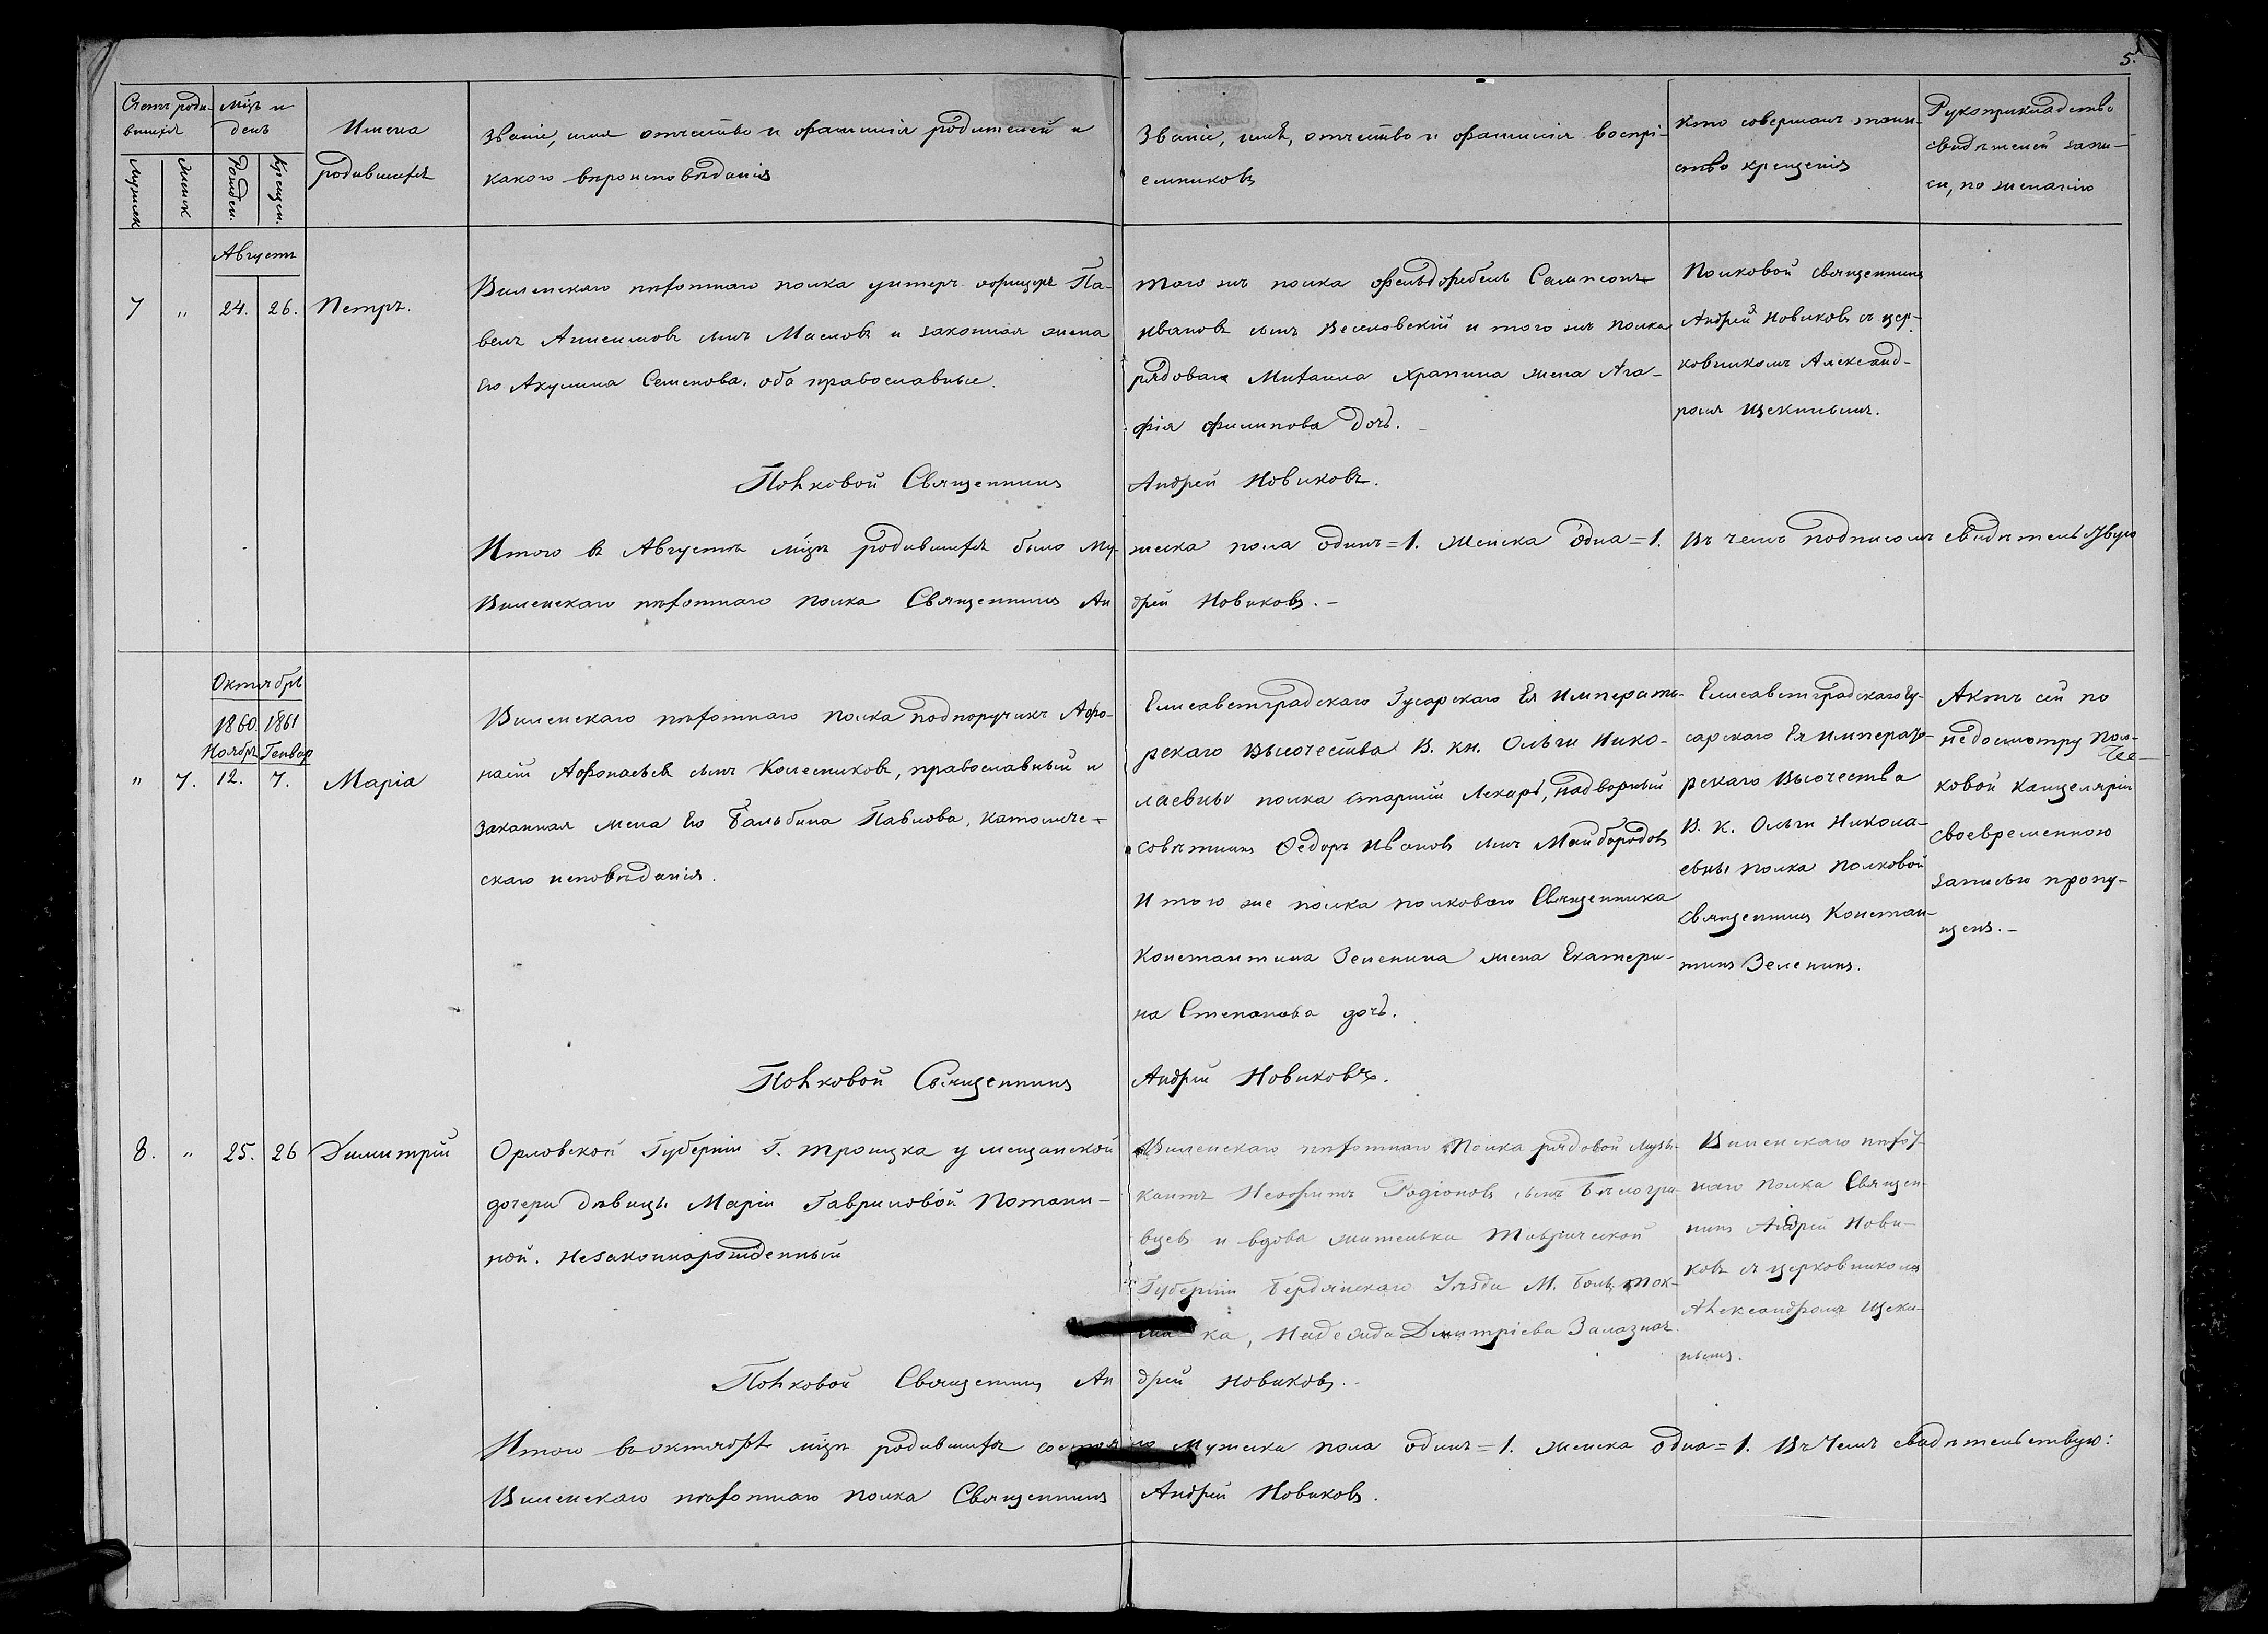 5.
Счетъ роди-
вшихся
Мцъ и
день
Мужеск
Женск
Рожден.
Крещен.
Имена
родившихся
Званіе, имя отчество и фамилія родителей и
какого вѣроисповѣданія
Званіе, имя, отчество и фамилія воспрі-
емниковъ
Кто совершалъ таин-
ство крещенія
Рукоприкладство
свидѣтелей запи-
си, по желанію
Августъ
7 " 24. 26. Петръ.
Виленскаго пѣхотнаго полка унтеръ офицеръ Па-
велъ Анисимовъ сынъ Масловъ и законная жена
его Акулина Семенова, оба православные.
того жъ полка фельдфебель Сампсонъ
Ивановъ сынъ и того жъ полка
рядоваго Михаила Храпина жена Ага-
фія Филипова дочь.
Полковой священникъ
Андрей Новиковъ съ цер-
ковникомъ Александ-
ромъ Щекинымъ.
Полковой Священникъ Андрей Новиковъ.
Итого въ Августѣ мцѣ родившихся было му-жеска пола одинъ=1. Женска одна=1. Въ чемъ подписомъ свидѣтельствую
Виленскаго пѣхотнаго полка Священникъ Андрей Новиковъ.–
Октябрь
1860. 1861
Ноябрь Генвар
" 7. 12. 7. Марія
Виленскаго пѣхотнаго полка подпоручикъ Афо-
насій Афонасьевъ сынъ Колесниковъ, православный и
законная жена его Бальбина Павлова, католиче-
скаго исповѣданія.
Елисаветградскаго Гусарскаго Ея Императо-
рскаго Высочества В. Кн. Ольги Нико-
лаевны полка старшій Лекарь, надворный
совѣтникъ Федоръ Ивановъ сынъ Майбородовъ
и того же полка полковаго Священника
Константина Зеленина жена Екатери-
на Степанова дочь.
Елисаветградскаго Гу-
сарскаго Ея Императо-
рскаго Высочества
В. К. Ольги Никола-
евны полка полковой
священникъ Констан-
тинъ Зеленинъ.
Актъ сей по
недосмотру Пол-
ковой Канцеляріи
своевременною
записью пропу-
щенъ.–
Полковой Священникъ Андрей Новиковъ.
8. " 25. 26 Димитрій
Орловской Губерніи Г. Троицка у мещанской
дочери дѣвицы Маріи Гавриловой Потапи-
ной. Незаконнорожденный
Виленскаго пѣхотнаго Полка рядовой музы-
кантъ Неофитъ Родіоновъ сынъ Бѣлогри-
вцевъ и вдова жителька Таврической
Губерніи Бердянскаго Уѣзда М. Боль. Ток-
ма ка, Надежда Дмитріева
Виленскаго пѣхот-
наго полка Священ-
никъ Андрей Нови-
ковъ съ церковникомъ
Александромъ Щеки-
нымъ.
Полковой Священникъ Андрей Новиковъ.–
Итого въ октябрѣ мцѣ родившихся состояло мужеска пола одинъ=1. женска одна=1. Въ чемъ свидѣтельствую:
Виленскаго пѣхотнаго полка Священникъ Андрей Новиковъ.